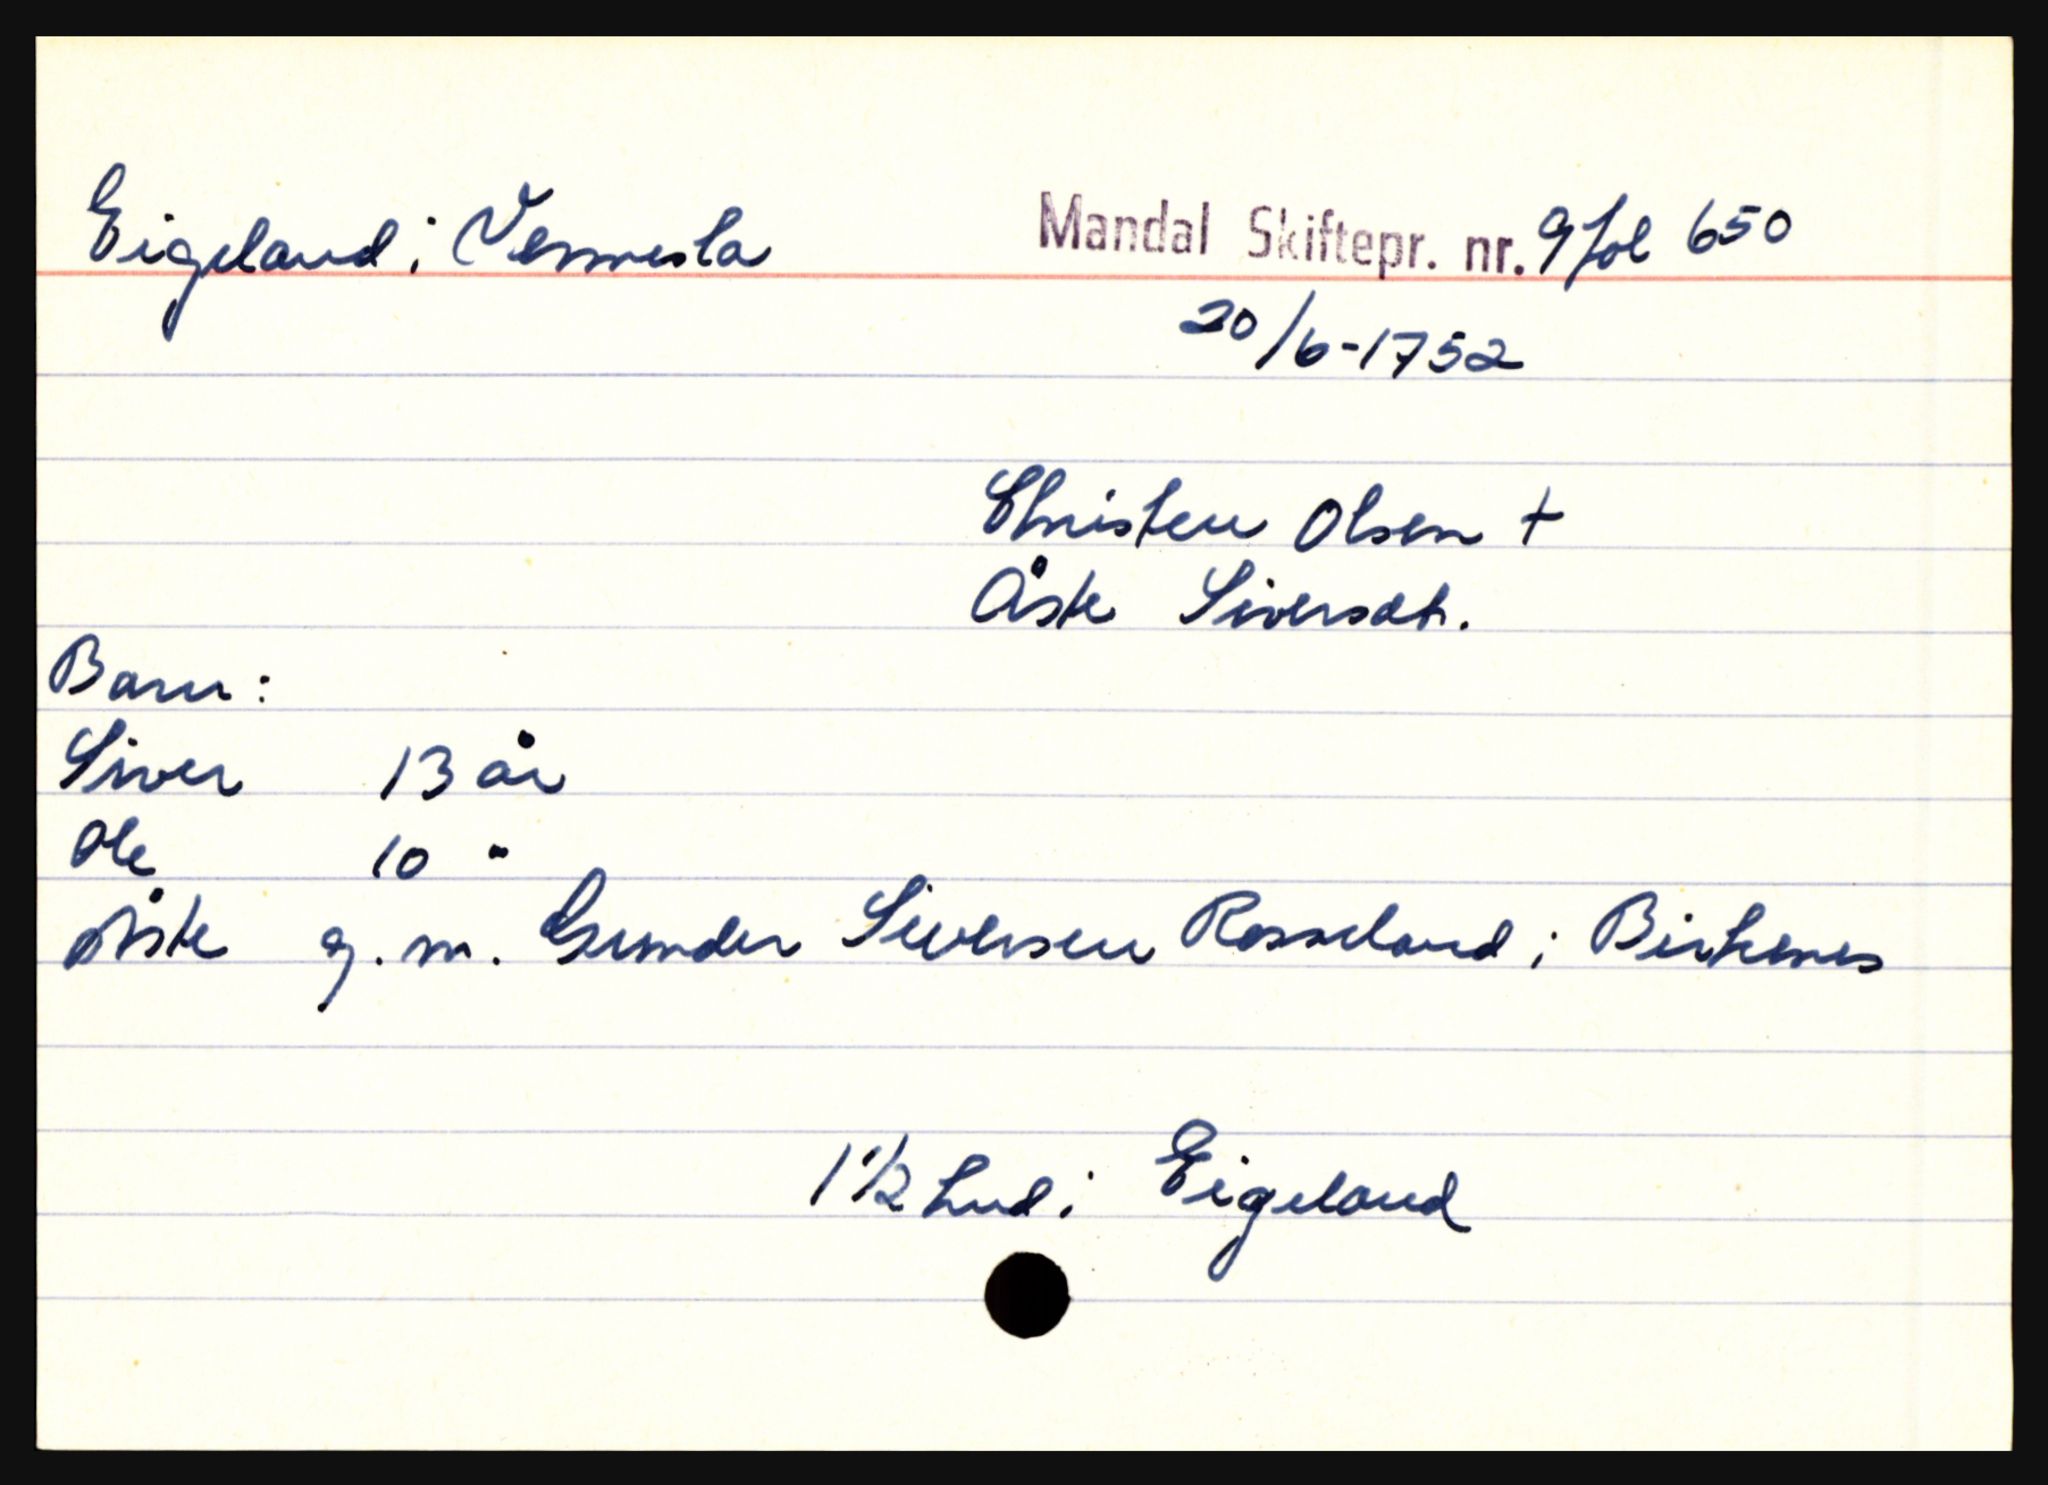 Eigeland i Vennesla Mandal Skiftepr. nr. 9 fol 650
20/6-1752
Christen Olsen +
Åste Siversdt.
Barn:
Siver 13 år
Ole 10 "
Åste g. m. Gunder Siversen Rosseland i Birkenes
1 1/2 hud i Eigeland